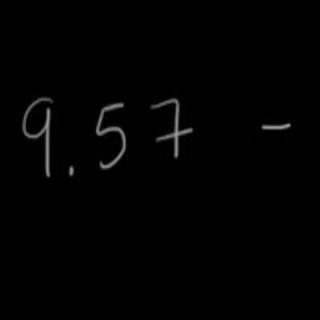 9.57 -